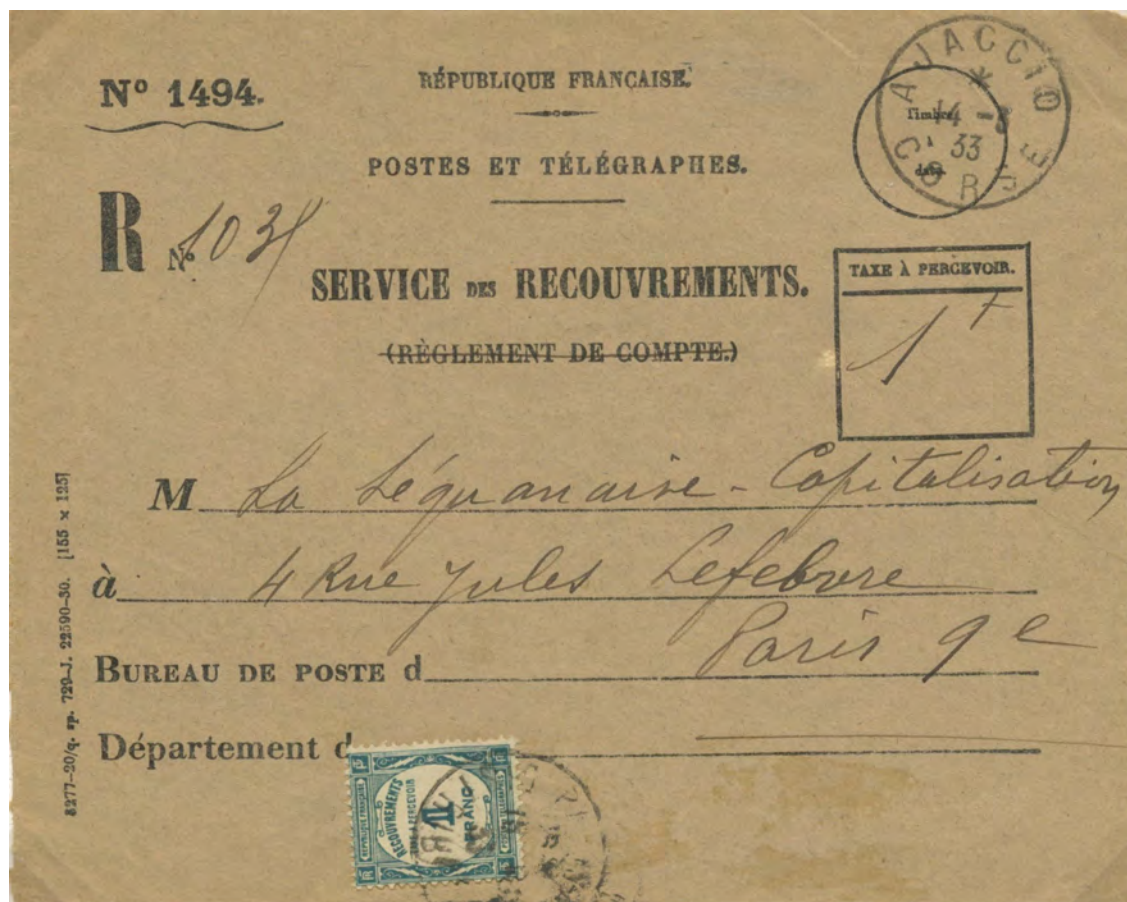 Nº 1494.
RÉPUBLIQUE FRANÇAISE.
POSTES ET TÉLÉGRAPHES.
AJACCIO
14 -
33
CORSE
Timbre
date.
R Nº
SERVICE DES RECOUVREMENTS.
(RÈGLEMENT DE COMPTE.)
TAXE À PERCEVOIR.
1 f
M La Séquanaise - Capitalisation
à 4 Rue Jules Lefebvre
Paris 9e
BUREAU DE POSTE d
Département d
8277-20/q. sp. 729-J. 22590-30. [155 x 125]
RÉPUBLIQUE FRANÇAISE
RECOUVREMENTS
TAXE À PERCEVOIR
1
FRANC